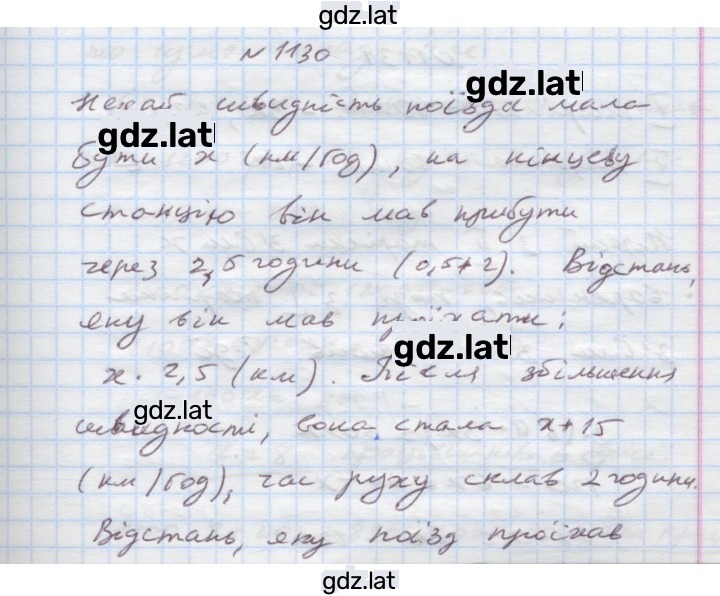 gdz.lat
№ 1130
gdz.lat
Нехай швидкість поїзда мала
gdz.lat
бути x (км/год), на кінцеву
станцію він мав прибути
через 2,5 години (0,5+2). Відстань,
яку він мав проїхати:
gdz.lat
x · 2,5 (км). Після збільшення
gdz.lat
швидкості, вона стала x+15
(км/год), час руху склав 2 години.
Відстань, яку поїзд проїхав
gdz.lat